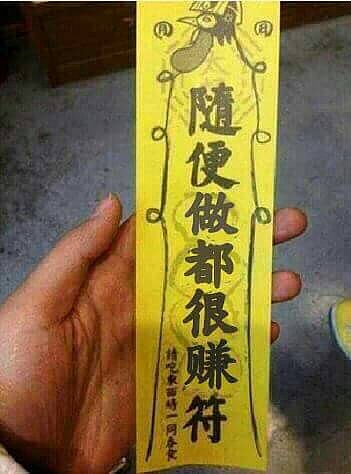 隨便做都很賺符
請吃東西時一同吞食